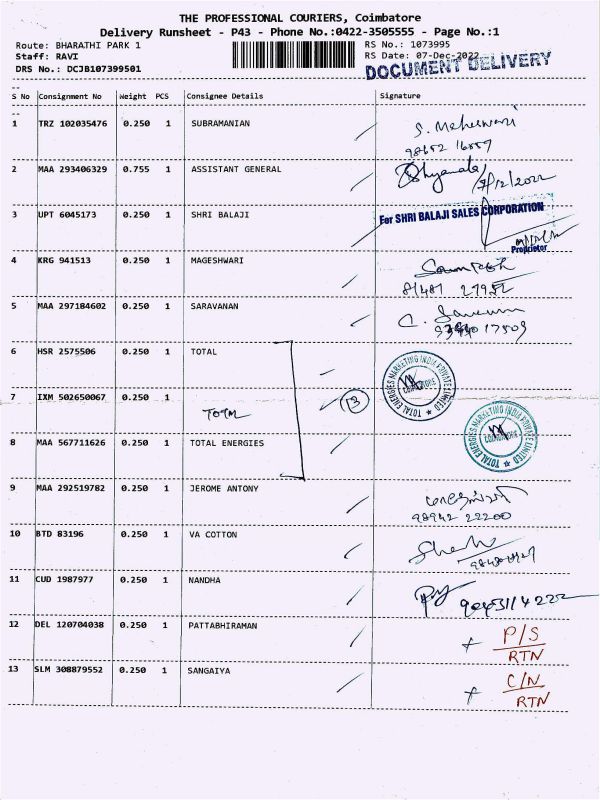 THE PROFESSIONAL COURIERS, Coimbatore
Delivery Runsheet - P43 - Phone No.:0422-3505555 - Page No.:1
Route: BHARATHI PARK 1 RS No.: 1073995
Staff: RAVI RS Date: 07-Dec-2022
DRS No.: DCJB107399501 DOCUMENT DELIVERY
S No Consignment No Weight PCS Consignee Details Signature
1 TRZ 102035476 0.250 1 SUBRAMANIAN S. Maheswari
2 MAA 293406329 0.755 1 ASSISTANT GENERAL 7/12/2022
3 UPT 6045173 0.250 1 SHRI BALAJI For SHRI BALAJI SALES CORPORATION
Proprietor
4 KRG 941513 0.250 1 MAGESHWARI
5 MAA 297184602 0.250 1 SARAVANAN
6 HSR 2575506 0.250 1 TOTAL
TOTAL ENERGIES MARKETING INDIA PRIVATE LIMITED
COIMBATORE
7 IXM 502650067 0.250 1 Total 13
8 MAA 567711626 0.250 1 TOTAL ENERGIES
TOTAL ENERGIES MARKETING INDIA PRIVATE LIMITED
COIMBATORE
9 MAA 292519782 0.250 1 JEROME ANTONY
98942 22200
10 BTD 83196 0.250 1 VA COTTON
11 CUD 1987977 0.250 1 NANDHA
12 DEL 120704038 0.250 1 PATTABHIRAMAN P/S
RTN
13 SLM 308879552 0.250 1 SANGAIYA C/N
RTN